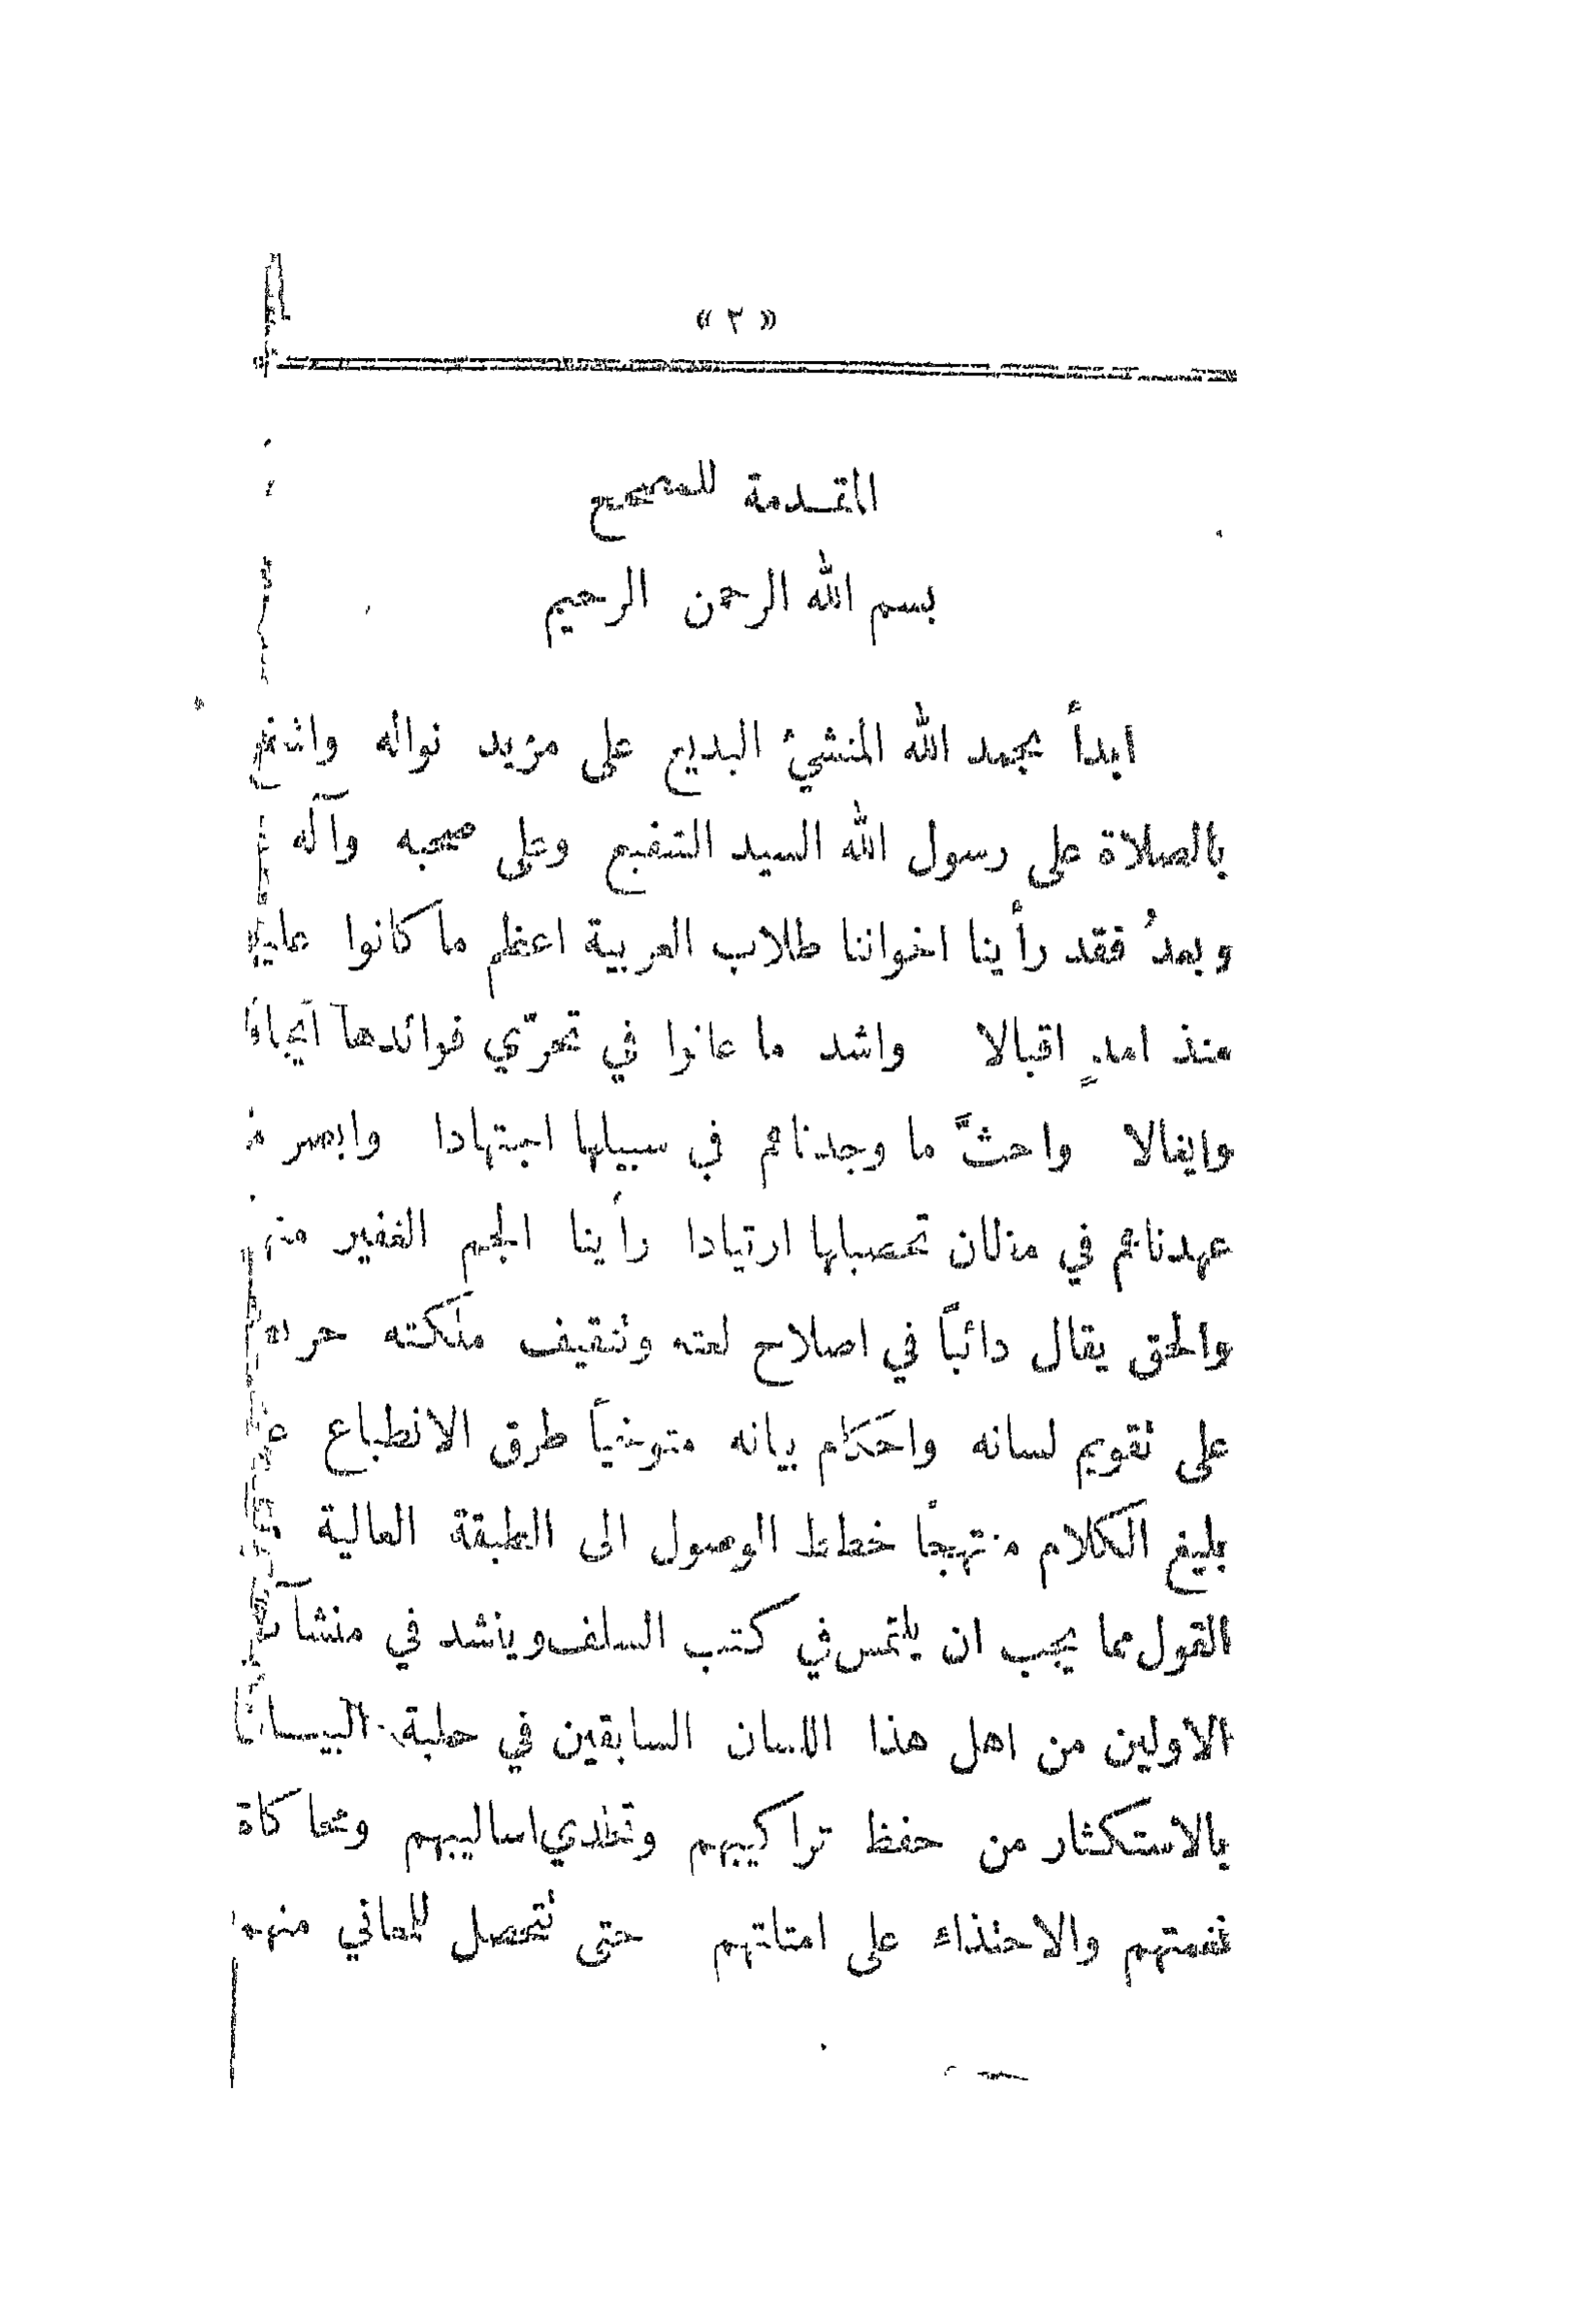 « ٣ »
المقدمة للمصحح
بسم الله الرحمن الرحيم
ابدأ بحمد الله المنشئ البديع على مزيد نواله
بالصلاة على رسول الله السيد الشفيع وعلى صحبه وآله
وبعدُ فقد رأينا اخواننا طلاب العربية اعظم ما كانوا
منذ امدٍ اقبالا واشد ما عانوا في تحرّي فوائدها
وايغالا واحثَّ ما وجدناهم في سبيلها اجتهادا وابصر
عهدناهم في مظان تحصيلها ارتيادا رأينا الجم الغفير
والحق يقال دائباً في اصلاح لغته وتثقيف ملكته
على تقويم لسانه واحكام بيانه متوخياً طرق الانطباع
بليغ الكلام منتهجاً خطط الوصول الى الطبقة العالية
القول مما يجب ان يلتمس في كتب السلف وينشد في
الاولين من اهل هذا اللسان السابقين في حلبة البيان
بالاستكثار من حفظ تراكيبهم وتحدي اساليبهم ومحاكاة
نغمتهم والاحتذاء على امثلتهم حتى تتحصل للمعاني منهم